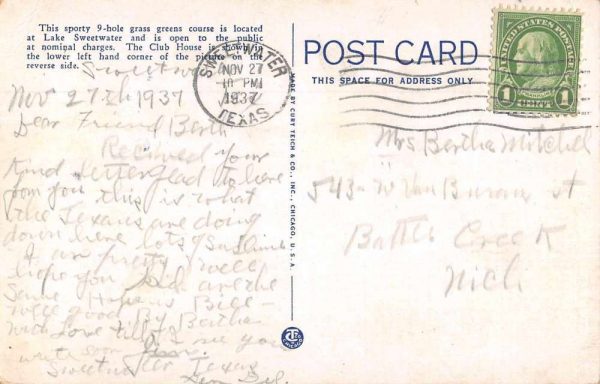 This sporty 9-hole grass greens course is located
at Lake Sweetwater and is open to the public
at nominal charges. The Club House is shown in
the lower left hand corner of the picture on the
reverse side.
Nov 27th 1937
Dear Friend Berth
Received your
kind letter glad to hear
from you this is what
the Texans are doing
down here lots of
I am pretty well
hope you and are the
same Bill
well good By Bertha
with Love till I see you
write soon
Sweetwater Texas
SWEETWATER
NOV 27
PM
1937
TEXAS
MADE BY CURT TEICH & CO., INC., CHICAGO, U. S. A.
POST CARD
THIS SPACE FOR ADDRESS ONLY
UNITED STATES POSTAGE
FRANKLIN
1 CENT 1
Mrs Bertha Mitchell
543 - W Van Buren st
Battle Creek
Mich